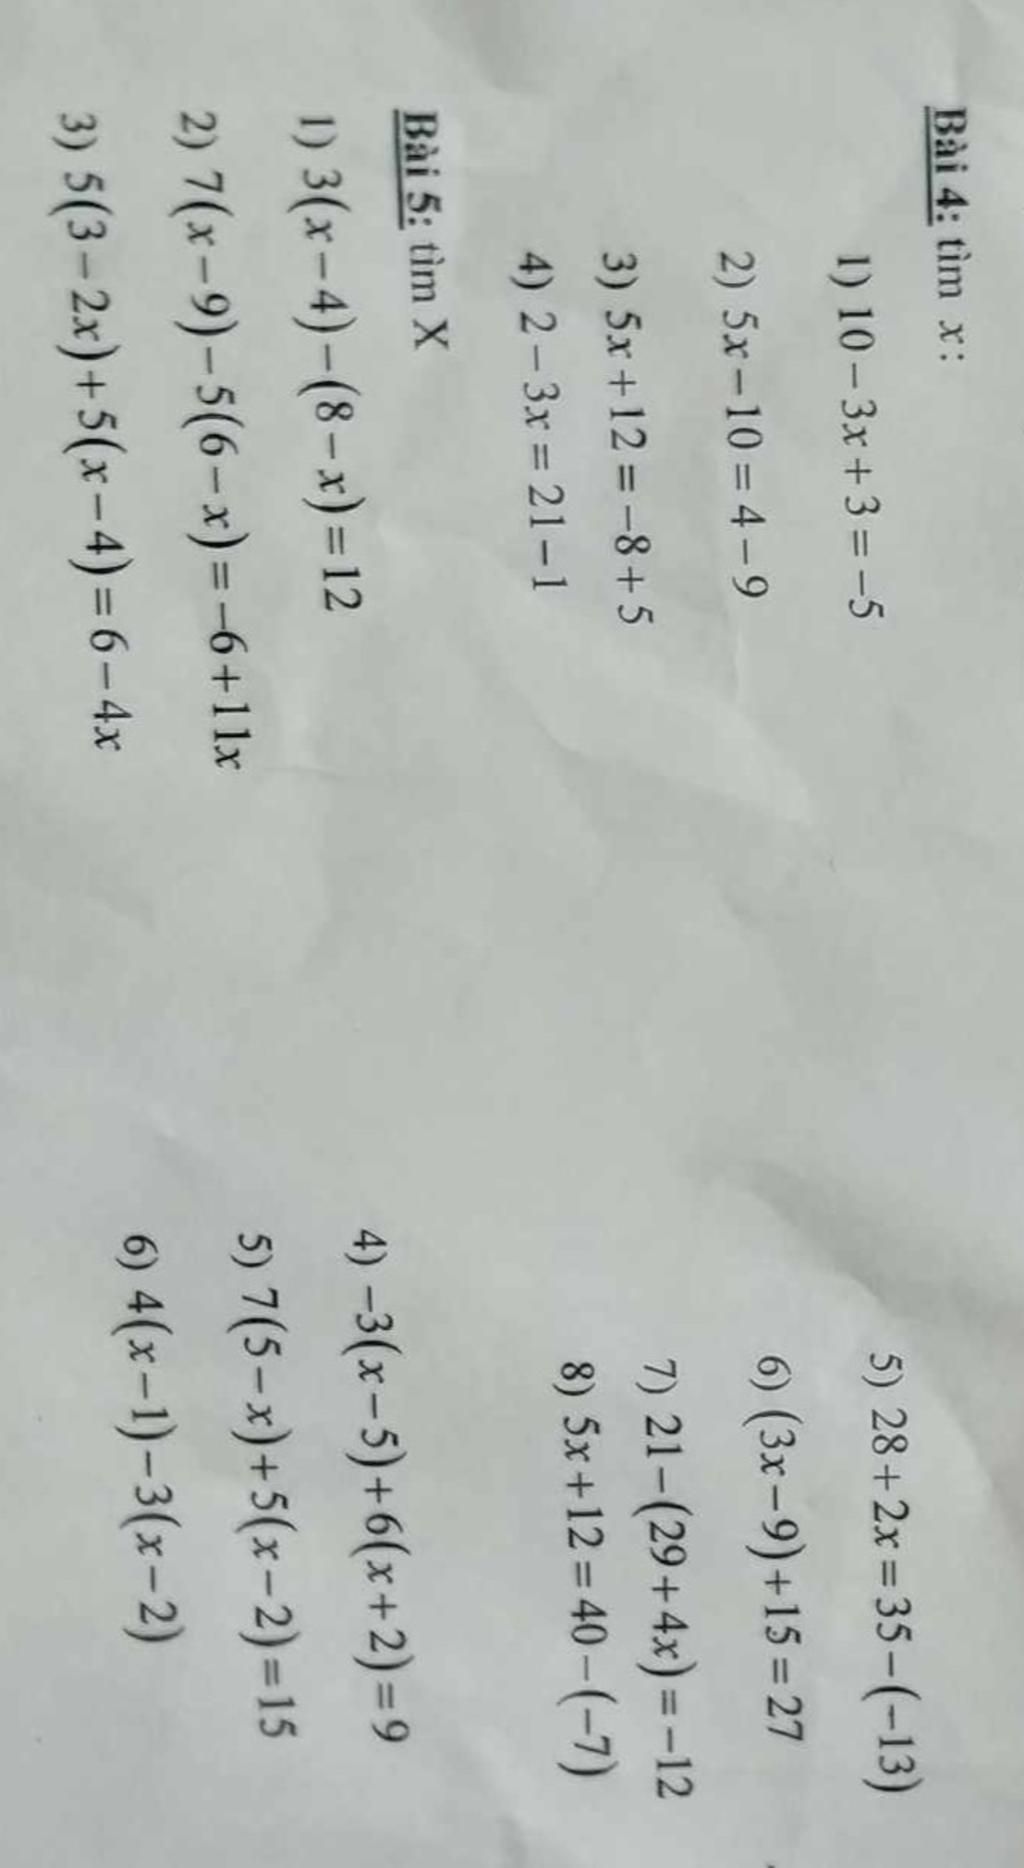 Bài 4: tìm x:
1) 10 − 3x + 3 = −5
2) 5x − 10 = 4 − 9
3) 5x + 12 = −8 + 5
4) 2 − 3x = 21 − 1
5) 28 + 2x = 35 − (−13)
6) (3x − 9) + 15 = 27
7) 21 − (29 + 4x) = −12
8) 5x + 12 = 40 − (−7)
Bài 5: tìm X
1) 3(x − 4) − (8 − x) = 12
2) 7(x − 9) − 5(6 − x) = −6 + 11x
3) 5(3 − 2x) + 5(x − 4) = 6 − 4x
4) −3(x − 5) + 6(x + 2) = 9
5) 7(5 − x) + 5(x − 2) = 15
6) 4(x − 1) − 3(x − 2)